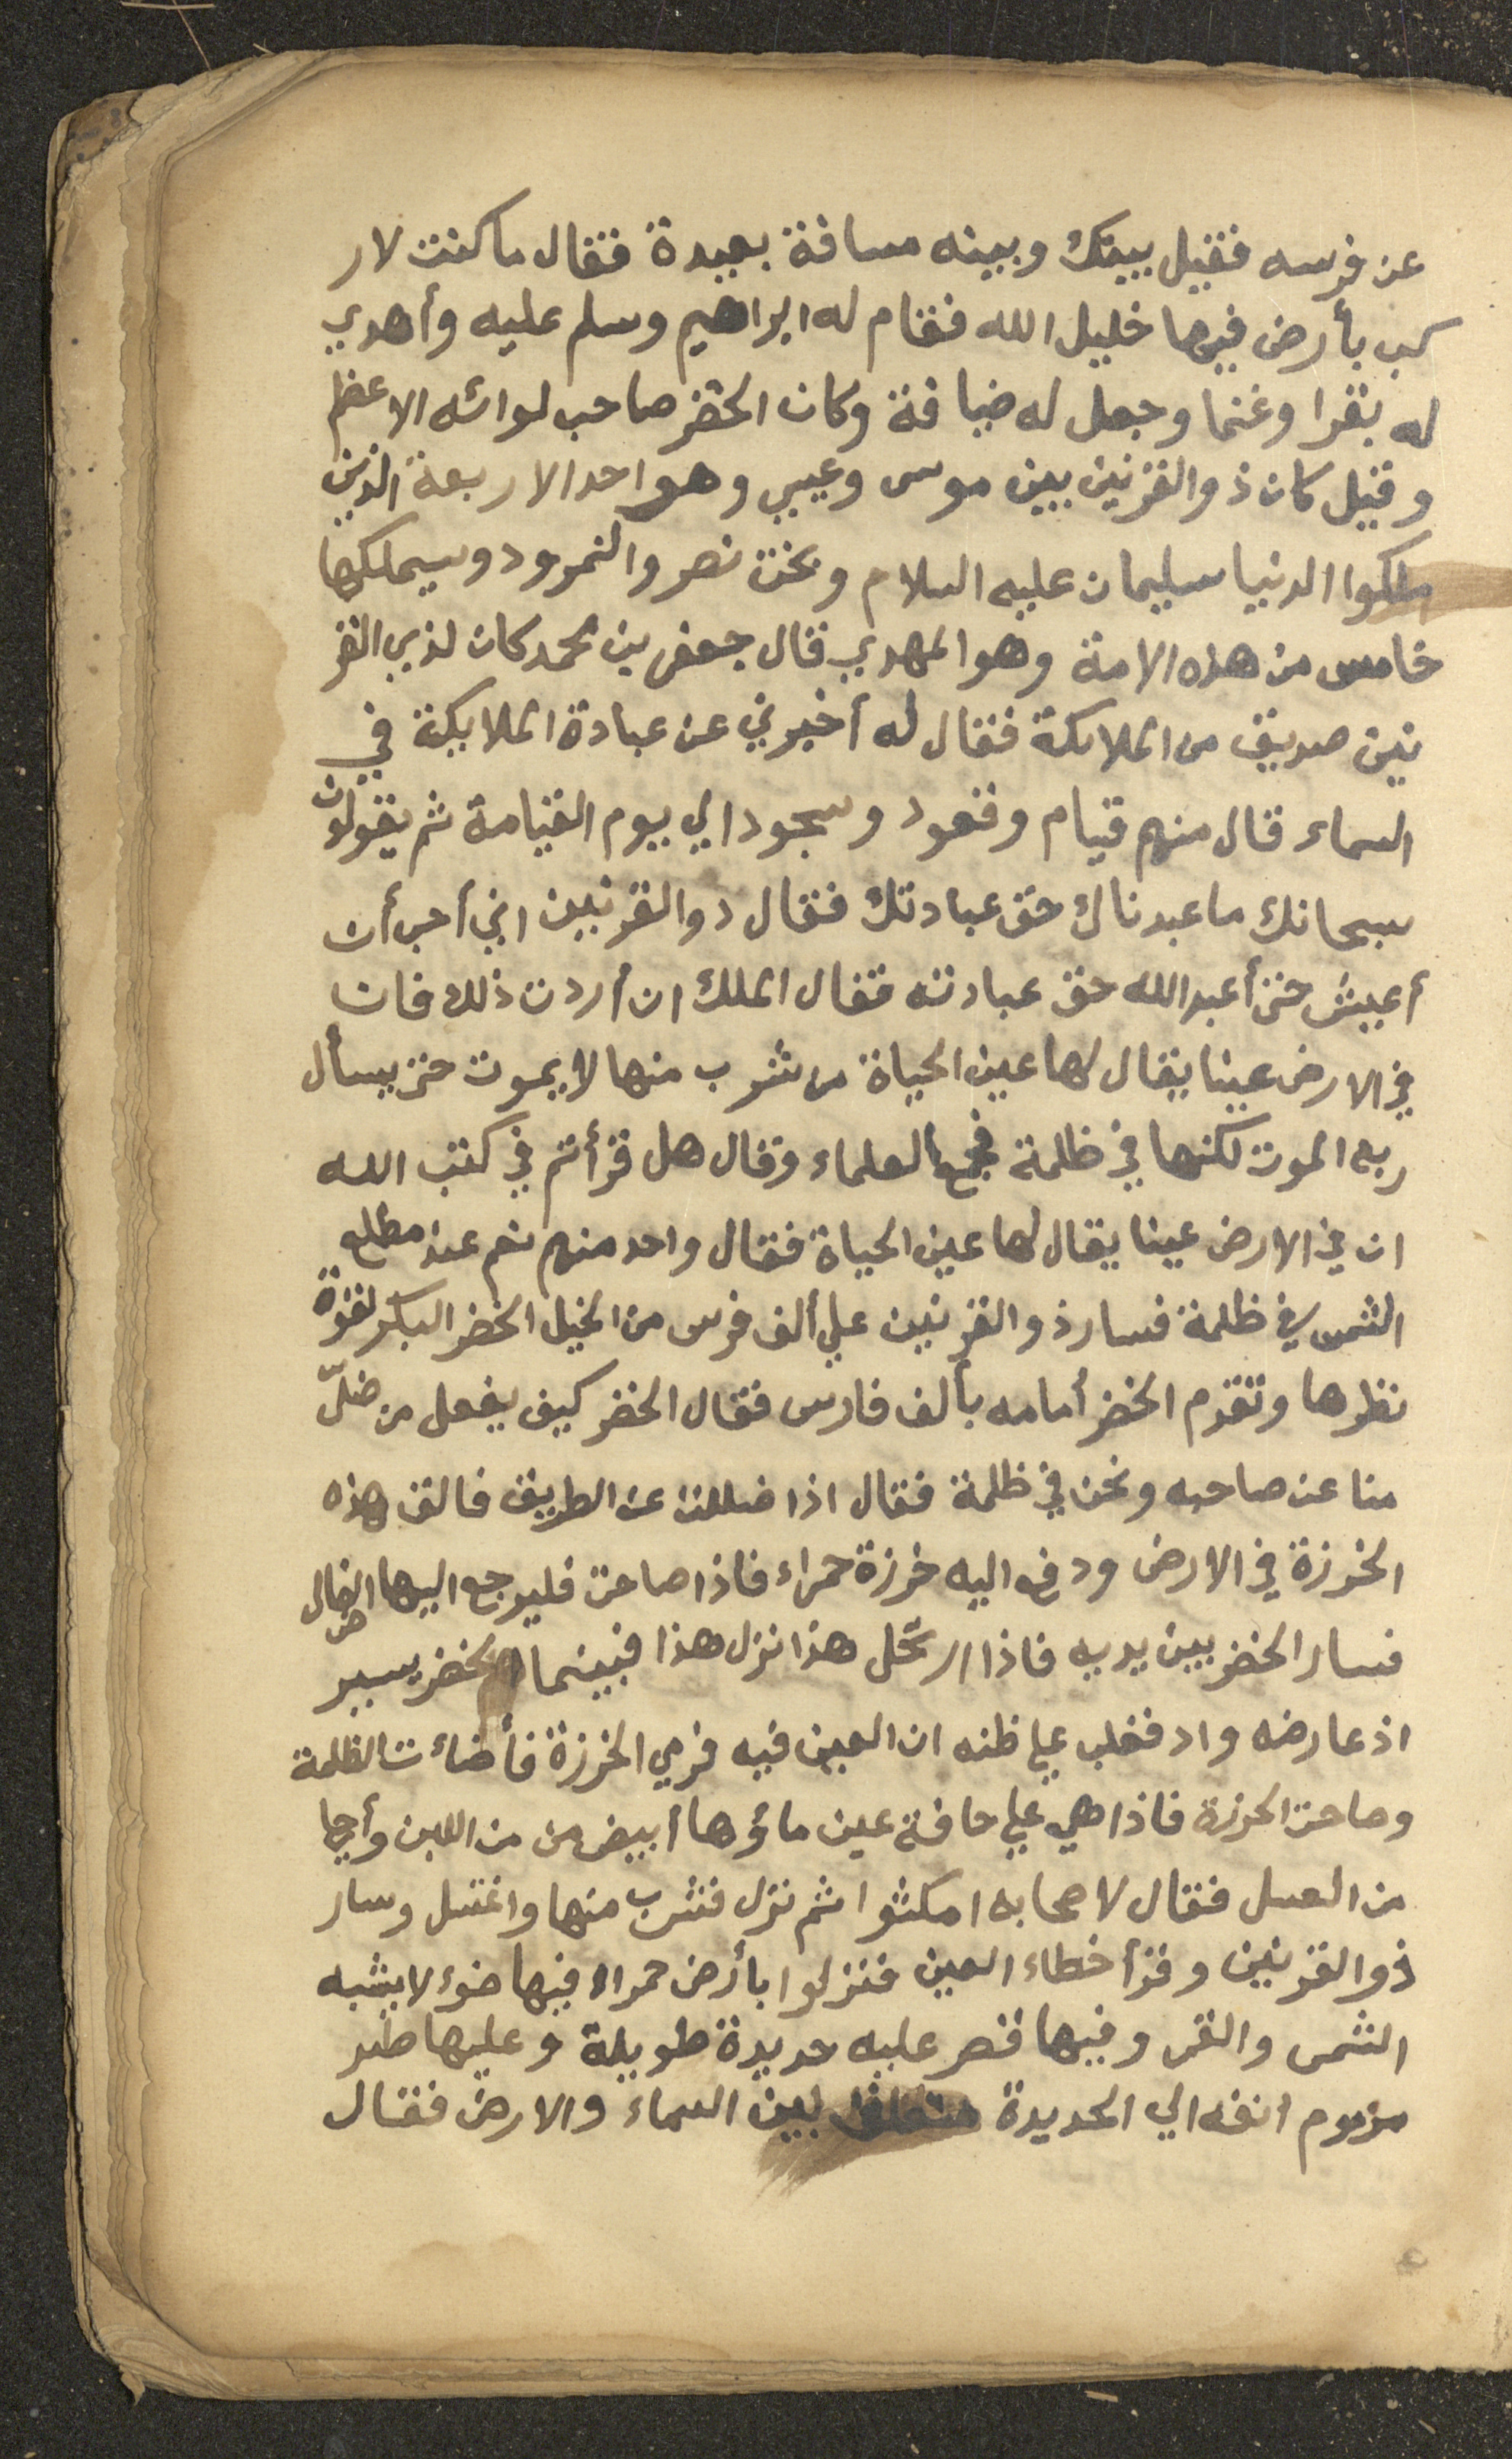 عن فرسه فقيل بينك وبينه مسافة بعيدة فقال ما كنت لار
كب بأرض فيها خليل الله فقام له ابراهيم وسلم عليه وأهدي
له بقرا وغنما وجعل له ضيافة وكان الخضر صاحب لوائه الاعظم
وقيل كان ذوالقرنين بين موسى وعيسي وهو احد الاربعة الذين
ملكوا الدنيا سليمان عليه السلام وبخت نصر والنمرود وسيملكها
خامس من هذه الامة وهو المهدي قال جعفر بن محمد كان لذي القر
نين صديق من الملائكة فقال له أخبرني عن عبادة الملايكة في
السماء قال منهم قيام وقعود وسجود الي يوم القيامة ثم يقولون
سبحانك ما عبدناك حق عبادتك فقال ذوالقرنين اني أحب أن
أعيش حتى أعبد الله حق عبادته فقال الملك ان أردت ذلك فان
في الارض عينا يقال لها عين الحياة من شرب منها لا يموت حتى يسأل
ربه الموت لكنها في ظلمة فجمع العلماء وقال هل قرأتم في كتب الله
ان في الارض عينا يقال لها عين الحياة فقال واحد منهم نعم عند مطلع
الشمس في ظلمة فسار ذوالقرنين علي ألف فرس من الخيل الخضر البكر لقوة
نظرها وتقدم الخضر أمامه بألف فارس فقال الخضر كيف يفعل من ضلّ
منا عن صاحبه ونحن في ظلمة فقال اذا ضللت عن الطريق فالق هذه
الخرزة في الارض ودفع اليه خرزة حمراء فاذا صاحت فليرجع اليها الضال
فسار الخضر بين يديه فاذا ارتحل هذا نزل هذا فبينما الخضر يسير
اذ عارضه واد فغلب علي ظنه ان العين فيه فرمي الخرزة فأضائت الظلمة
وصاحت الخرزة فاذا هي علي حافة عين ماؤها أبيض من من اللبن وأحلا
من العسل فقال لاصحابه امكثوا ثم نزل فشرب منها واغتسل وسار
ذوالقرنين وقد أخطاء العين فنزلوا بأرض حمراء فيها ضوء لا يشبه
الشمس والقمر وفيها قصر عليه حديدة طويلة وعليها طير
مزموم انفه الي الحديدة متعلق بين السماء والارض فقال